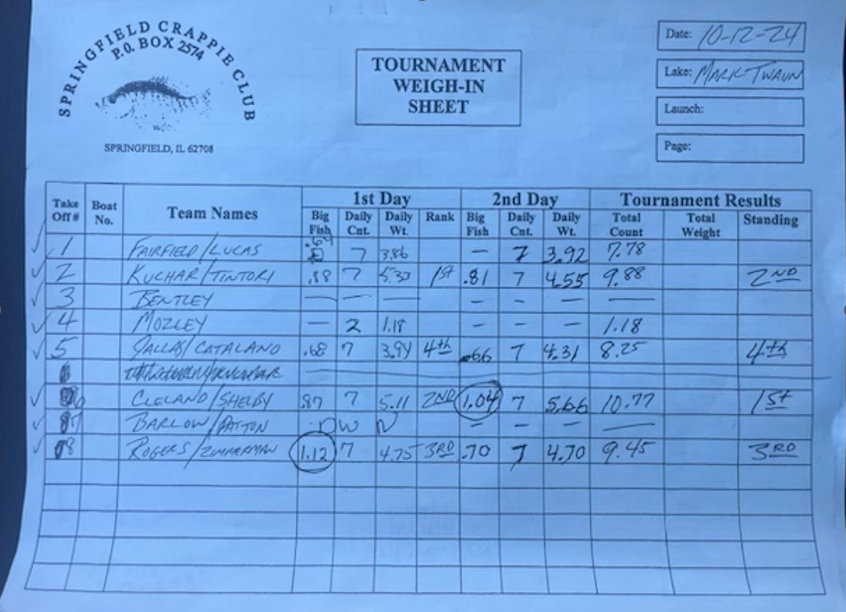 SPRINGFIELD CRAPPIE CLUB
P.O. BOX 2574
SPRINGFIELD, IL 62708
TOURNAMENT
WEIGH-IN
SHEET
Date: 10-12-24
Lake: MARK TWAUN
Launch:
Page:
1st Day 2nd Day Tournament Results
Take Off # Boat No. Team Names Big Fish Daily Cnt. Daily Wt. Rank Big Fish Daily Cnt. Daily Wt. Total Count Total Weight Standing
1 FAIRFIELD/LUCAS .69 7 3.86 — 7 3.92 7.78
2 KUCHAR/TINTORI .88 7 5.33 1st .81 7 4.55 9.88 2ND
3 BENTLEY — — — — — —
4 MOZLEY — 2 1.18 — — — 1.18
5 GALLAS/CATALANO .68 7 3.94 4th .66 7 4.31 8.25 4th
6
6 CLELAND/SHELBY .87 7 5.11 2ND 1.04 7 5.66 10.77 1st
7 BARLOW/PATTON D W N — — — —
8 ROGERS/ZIMMERMAN 1.12 7 4.75 3RD .70 7 4.70 9.45 3RD